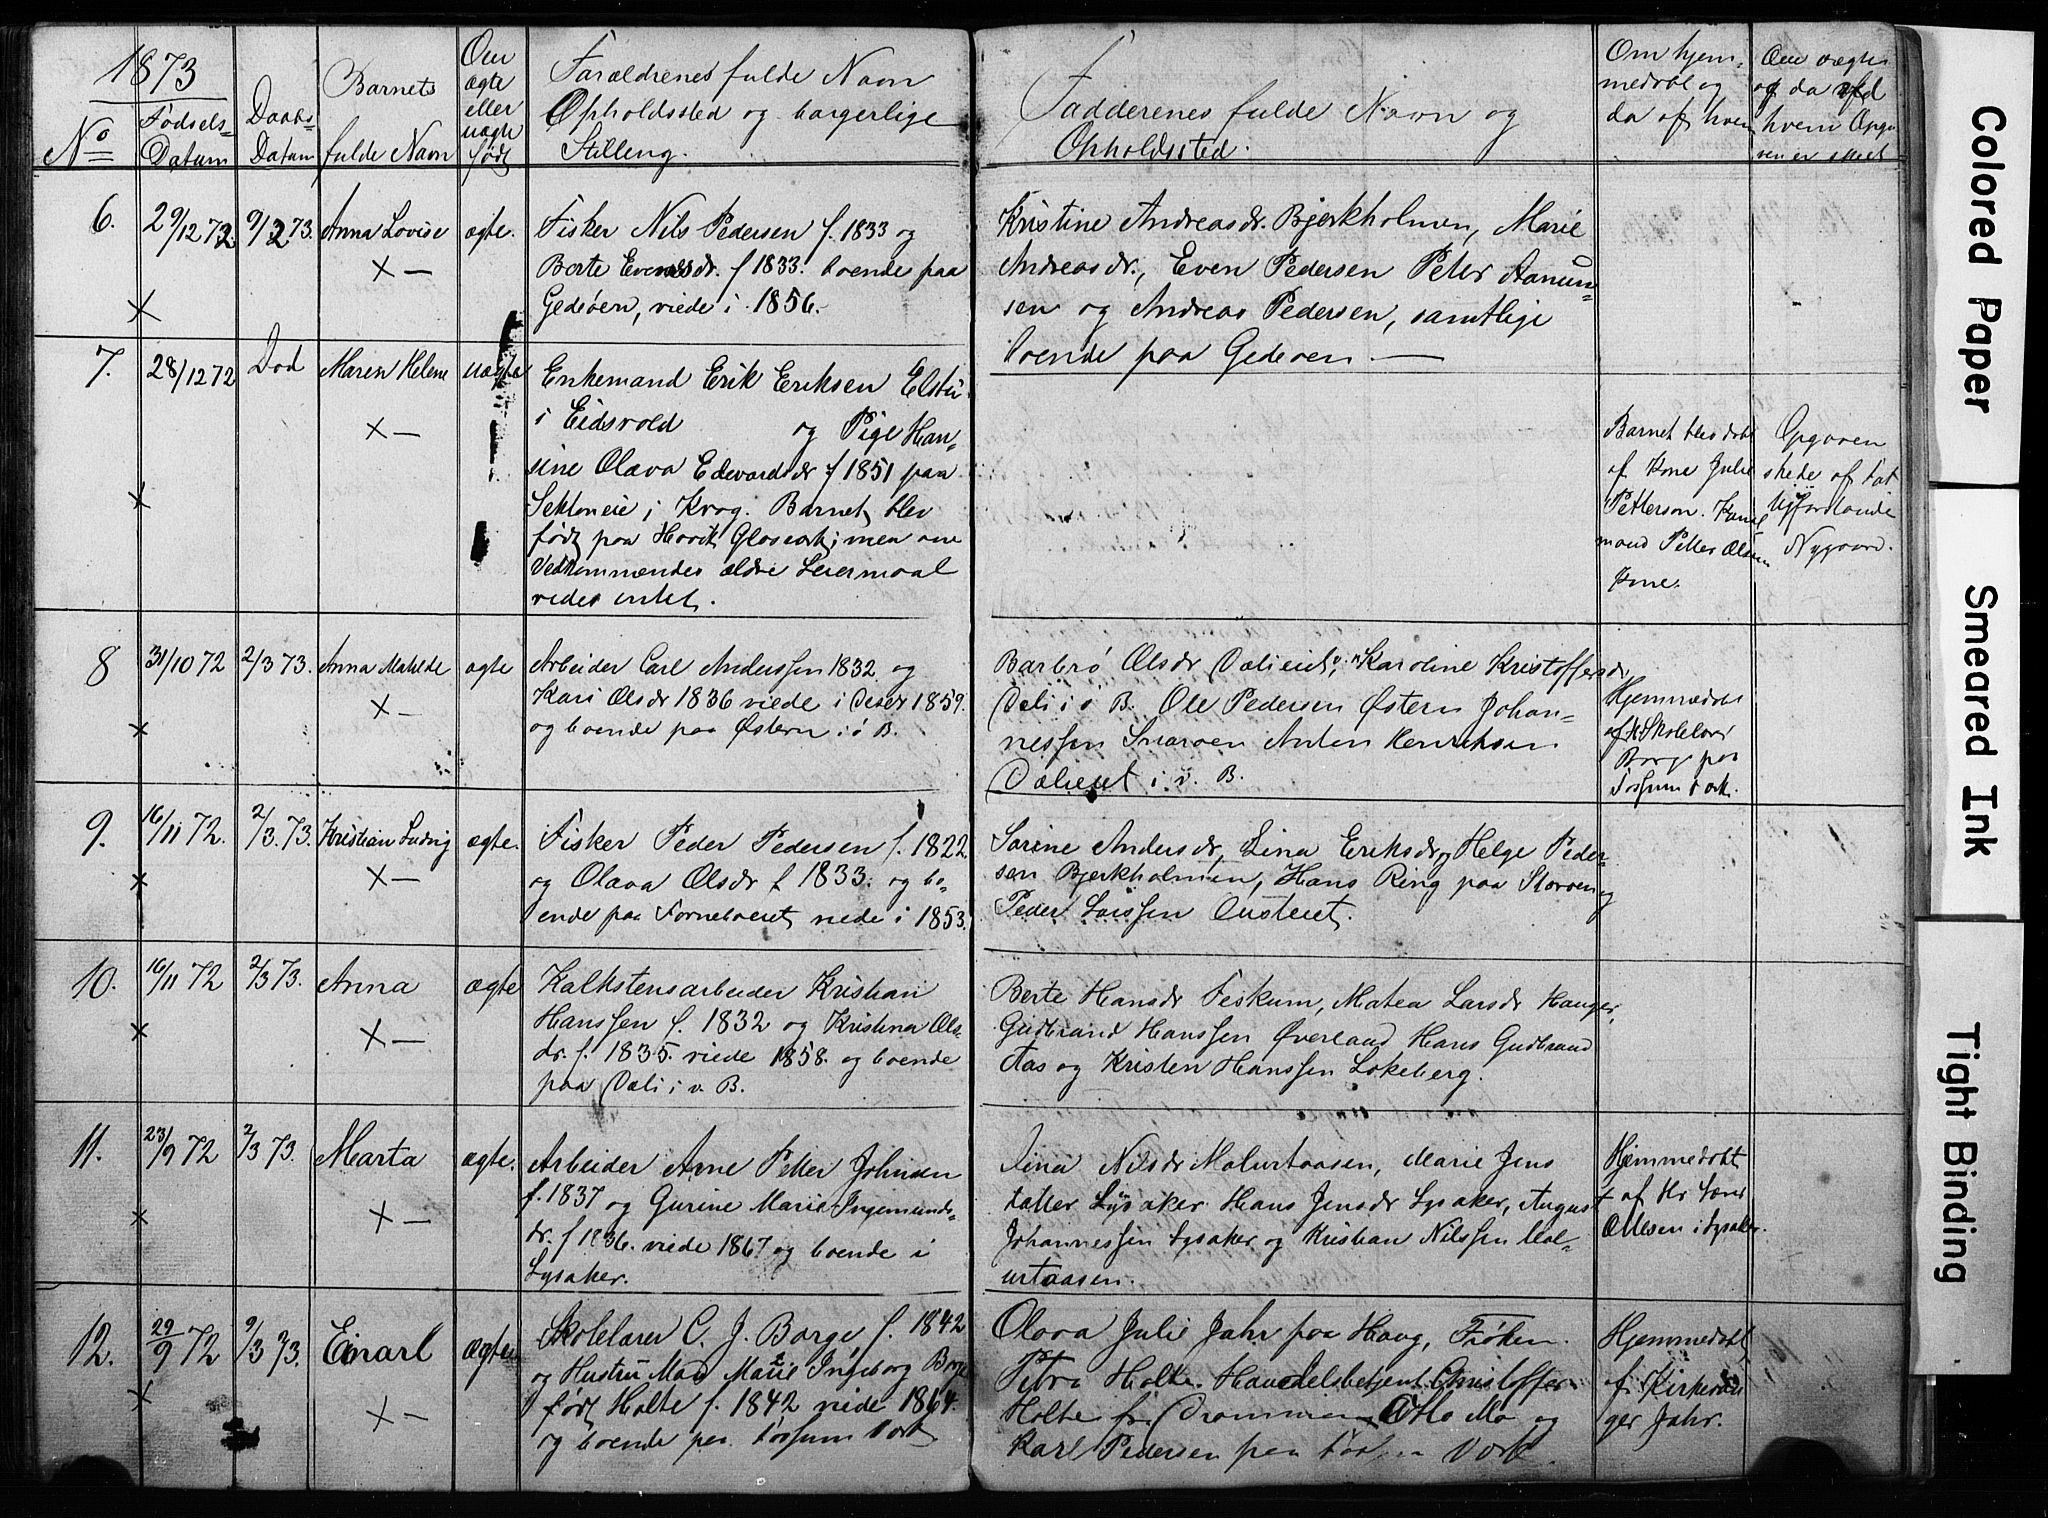 1873
No
Fødsels-
Datum
Daabs-
Datum
Barnets
fulde Navn
Om
ægte
eller
uægte
født
Forældrenes fulde Navn
Opholdssted og borgerlige
Stilling.
Fadderenes fulde Navn og
Opholdssted.
Om hjem-
medøbt og
da af hvem
Om uægte
og da
hvem Opga-
ven er skeet
6.
29/12 72.
9/2 73.
Anna Lovise
×—
ægte.
Fisker Nils Pedersen f. 1833 og
Berte Evensdr. f 1833. boende paa
Gedøen, viede i 1856.
Kristine Andreasdr. Bjerkholmen, Marie
Andreasdr., Even Pedersen Peter Aanun-
sen og Andreas Pedersen, samtlige
boende paa Gedøen —
×
7.
28/12 72
Død
Maren Helene
×—
uægte
Enkemand Erik Eriksen
i Eidsvold og Pige Han-
sine Olava Edvardsdr f 1851 paa
i Krog. Barnet blev
født paa Høvik Glasværk; men om
Vedkommendes ældre Leiermaal
vides intet.
Barnet blev døbt
af Kone Julie
Petterson. Kane
mand Petter Olsen
Kone.
Opgaven
skede af Fat
tigforstande
Nygaard.
×
8
31/10 72
2/3 73.
Anna Matilde
×—
ægte
Arbeider Carl Anderssen 1832 og
Kari Olsdr 1836 viede i Decbr 1859.
og boende paa Østern i ø B.
Barbrø Olsdr Dælieiet, Karoline Kristoffersdr
Dæli i ø B. Ole Pedersen Østern Johan-
nessen Snarøen Anton Henriksen
Dælieiet i v. B.
Hjemmedøbt
af Hr Skolelærer
Borge paa
Fossum Værk.
×
9.
16/11 72.
2/3. 73.
Kristian Ludvig
×—
ægte.
Fisker Peder Pedersen f. 1822.
og Olava Olsdr f 1833. og bo-
ende paa Forneboeiet viede i 1853.
Sørine Andersdr, Lina Eriksdr, Helge Peder-
sen Bjerkholmen, Hans Ring paa Storøen og
Peder Larssen Ousteiet.
×
10.
16/11 72
2/3 73.
Anna
×—
ægte
Kalkstensarbeider Kristian
Hanssen f. 1832 og Kristina Ols-
dr. f. 1835. viede 1858. og boende
paa Dæli i v. B.
Berte Hansdr Fiskum, Matea Larsdr Hauger,
Gudbrand Hanssen Øverland Hans Gudbrand
Aas og Kristen Hanssen Løkeberg.
×
11.
23/9 72
2/3 73.
Marta
×—
ægte.
Arbeider Arne Petter Johnsen
f. 1837 og Gurine Marie Ingemunds-
dr. f 1836. viede 1867 og boende i
Lysaker.
Dina Nilsdr Malurtaasen, Marie Jens
datter Lysaker Hans Jensdr Lysaker, August
Johannessen Lysaker og Kristian Nilssen Mal-
urtaasen.
Hjemmedøbt
af Hr
Ottesen i Lysaker.
×
12.
29/9 72
9/3 73.
Einarl
×—
ægte
Skolelærer C. J. Borge f. 1842
og Hustru Mad Marie Ingeborg Borge
født Holte f. 1842 viede 1864.
og boende paa Fossum Værk
Olava Julie Jahr paa Haug, Frøken
Petra Holte. Handelsbetjent Christoffer
Holte fra Drammen, Otto Mo og
Karl Pedersen paa Fossum Værk.
Hjemmedøbt,
af Kirkesan
ger Jahr.
×
Colored Paper
Smeared Ink
Tight Binding